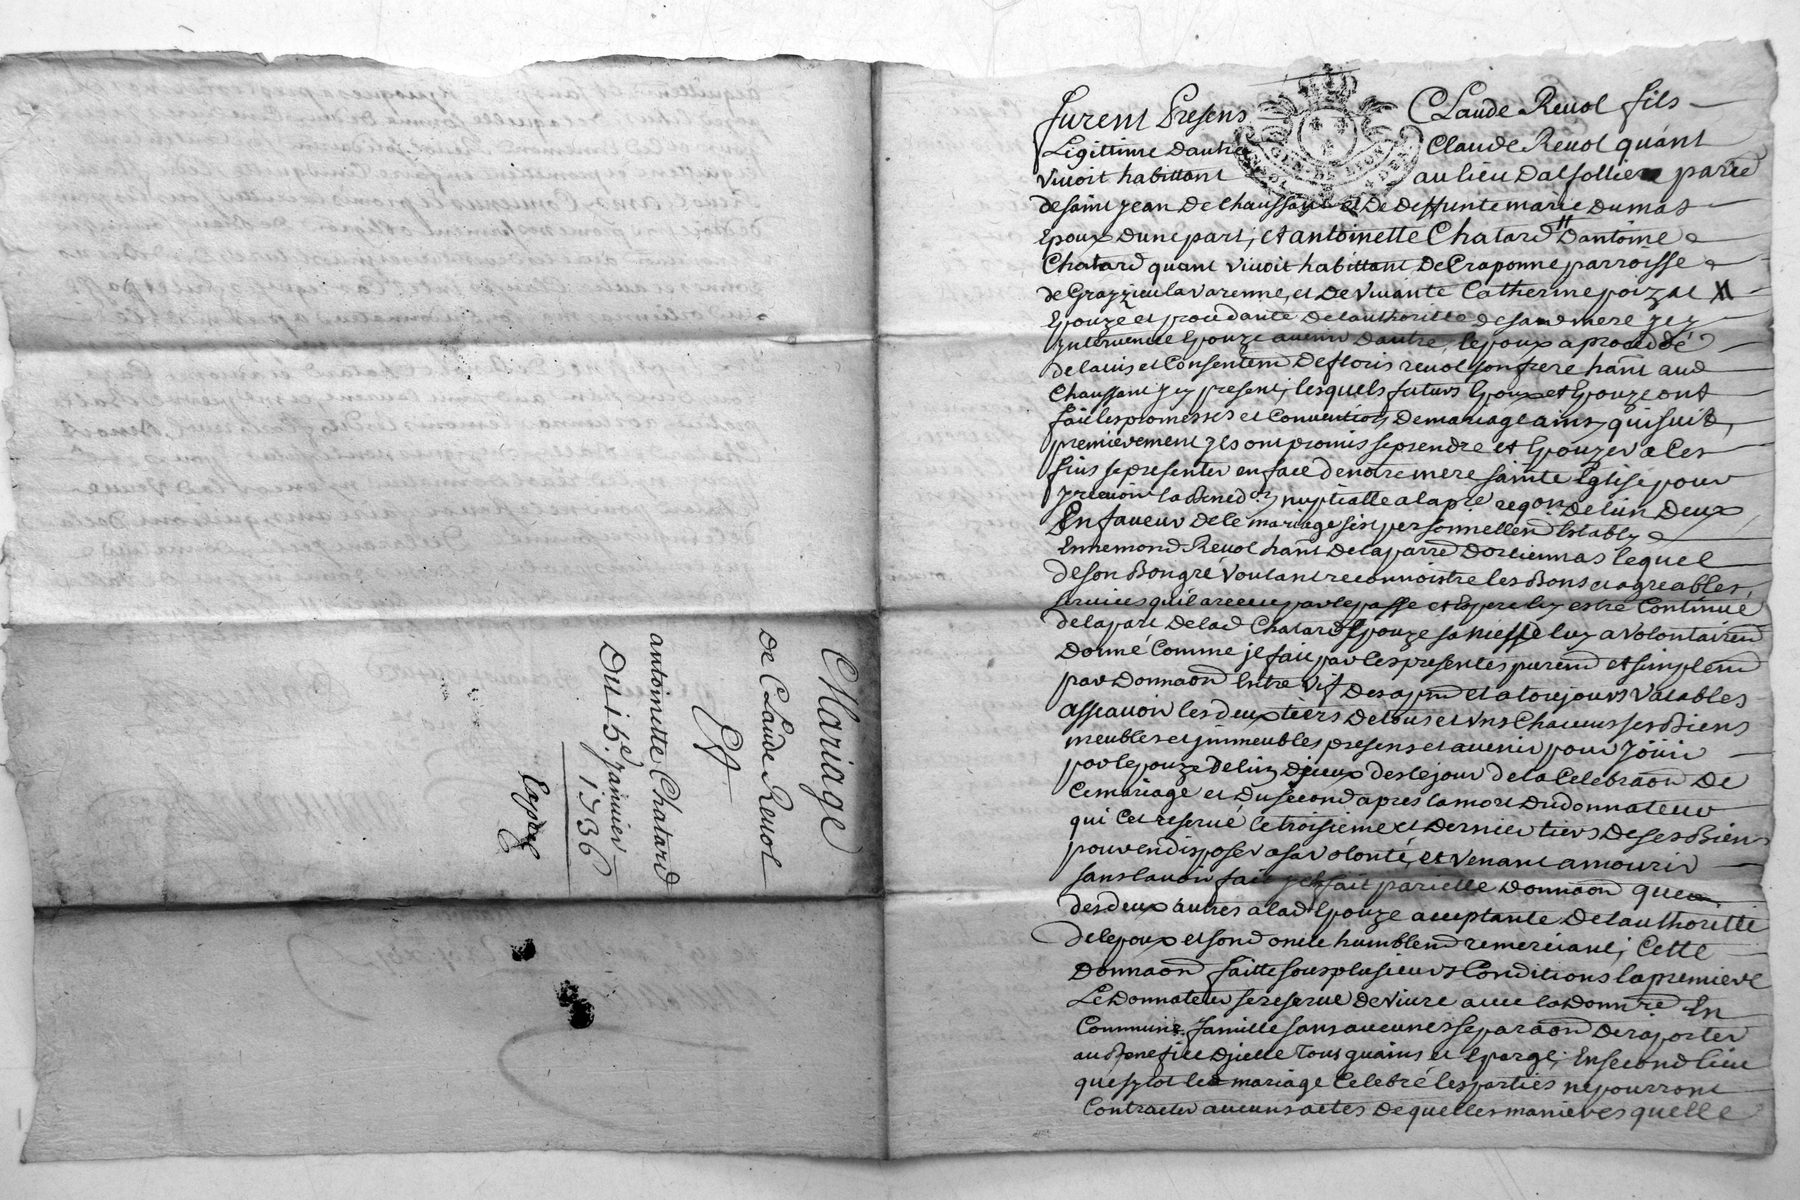 Mariage
De Claude Revol
Et
antoinette Chatard
Du 15e Janvier
1736
Expéd
furent Presens Claude Revol fils
Legittime dautre Claude Revol quant
vivoit habittant au lieu Dalsolliere parrd
de saint jean De Chaussant et De Deffunte marie Dumas
Epoux Dune part, et antoinette Chatard # Dantoine
Chatard quant vivoit habittant De Craponne parroisse
de Grezzieu la varenne, et De vivante Catherine poizat #
Epouze et proceddante De lauthoritte de sad mere jcy
Intervenue Epouze avenir Dautre, lepoux a proceddé
de lavis et Consentemd De floris revol son frere hant aud
Chaussant jcy present, lesquels futurs Epoux et Epouze ont
fait les promesses et Conventions De mariage ainsy qui suit,
premièrement jls ont promis se prendre et Epouzer a ces
fins se presenter en face de notre mere sainte Eglise pour
y recevoir la Bened on nuptialle a la pre reqon De lun Deux
En faveur De ce mariage sest personnellemd Estably
Ennemond Revol hant De la parrd Dorliennas lequel
de son Bon gré voulant reconnoistre les Bons et agreables
services quil a receu par le passe et Espere luy estre Continué
de la part De lad Chatard Epouze sa niesse luy a volontairemd
Donné Comme je fait par les presentes puremd et simplemd
par Donnaon Entre vif Des apnt et a toujours valables
assavoir les deux tiers De tous et uns Chacuns ses Biens
meubles et jmmeubles presens et avenir pour joüir
par lepouze De lun Djceux des le jour de la Celebraon De
Ce mariage et Du second apres la mort Du donnateur
qui Cet reserve le troisieme et Dernier tiers De ses Biens
pour en disposer a sa volonté, et venant a mourir
sans lavoir fait jl fait parielle Donnaon que
des deux autres a lad Epouze acceptante De lauthoritte
de lepoux et son d oncle humblemd remerciant, Cette
Donnaon faitte sous plusieurs Conditions la premiere
Le Donnateur se reserve De vivre avec la Donn re En
Commune famille sans aucune separaon De raporter
au Benefice Djcelle tous guains et Epargr, En second lieu
que sytot led mariage Celebré les parties ne pourront
Contracter aucuns actes De quelles manieres quelle